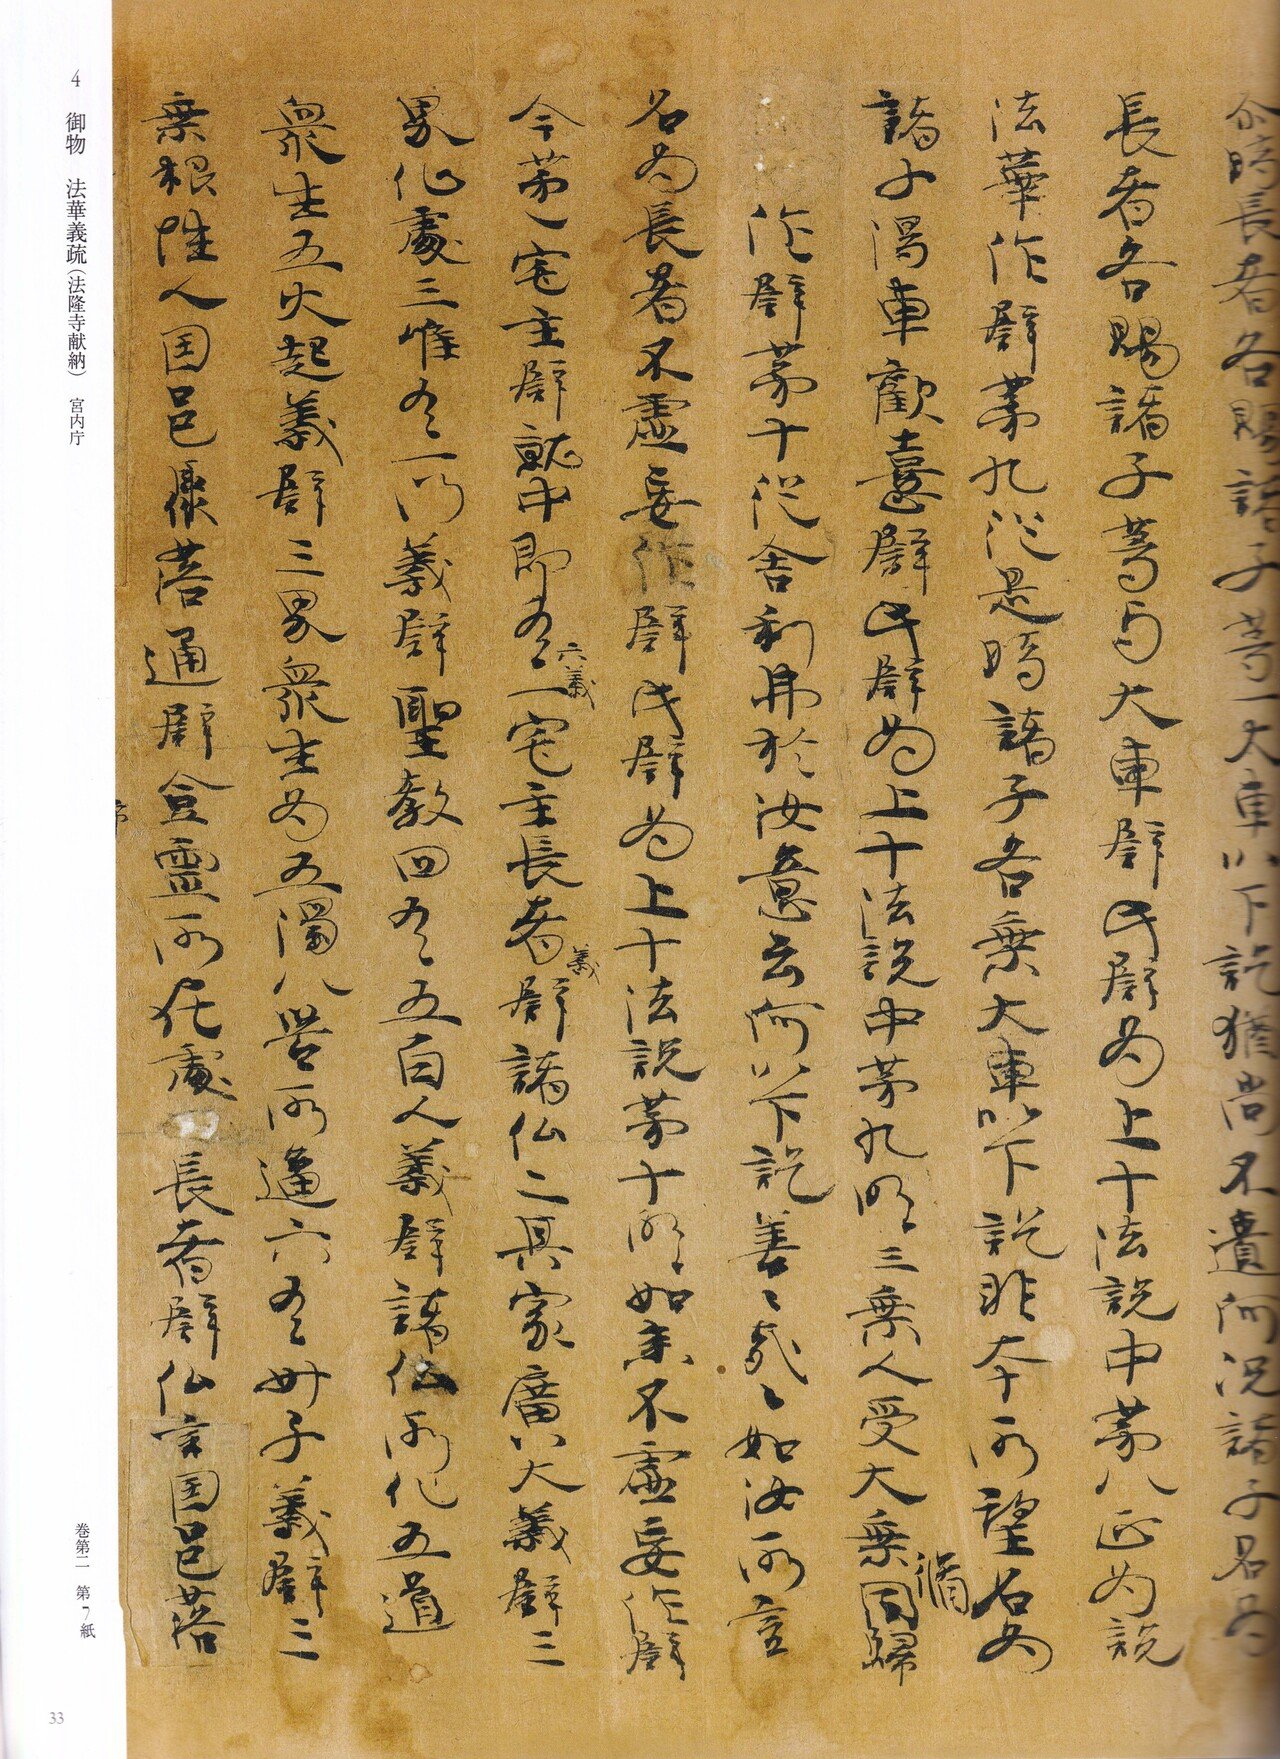 尒時長者各賜諸子等一大車以下訖猶尚不遺何況諸子名為
長者各賜諸子等与大車譬此譬為上十法説中第八正為説
法華作譬第九従是時諸子各乗大車以下訖非本所望名為
諸子得車歓喜譬此譬為上十法説中第九明三乗人受大乗同歸
脩
作譬第十従舎利弗於汝意云何以下訖善〻哉〻如汝所言
名為長者不虚妄作譬此譬為上十法説第十明如来不虚妄作譬
今第一宅主譬就中即有一宅主長者譬諸仏二具家廣大義譬三
六義
義
界化處三唯有一門義譬聖教四有五百人義譬諸仏所化五道
衆生五火起義譬三界衆生為五濁八苦所逼六有卅子義譬三
乗根性人国邑聚落通譬含霊所在處 長者譬仏言国邑落
4 御物 法華義疏(法隆寺献納) 宮内庁
巻第二 第7紙
33